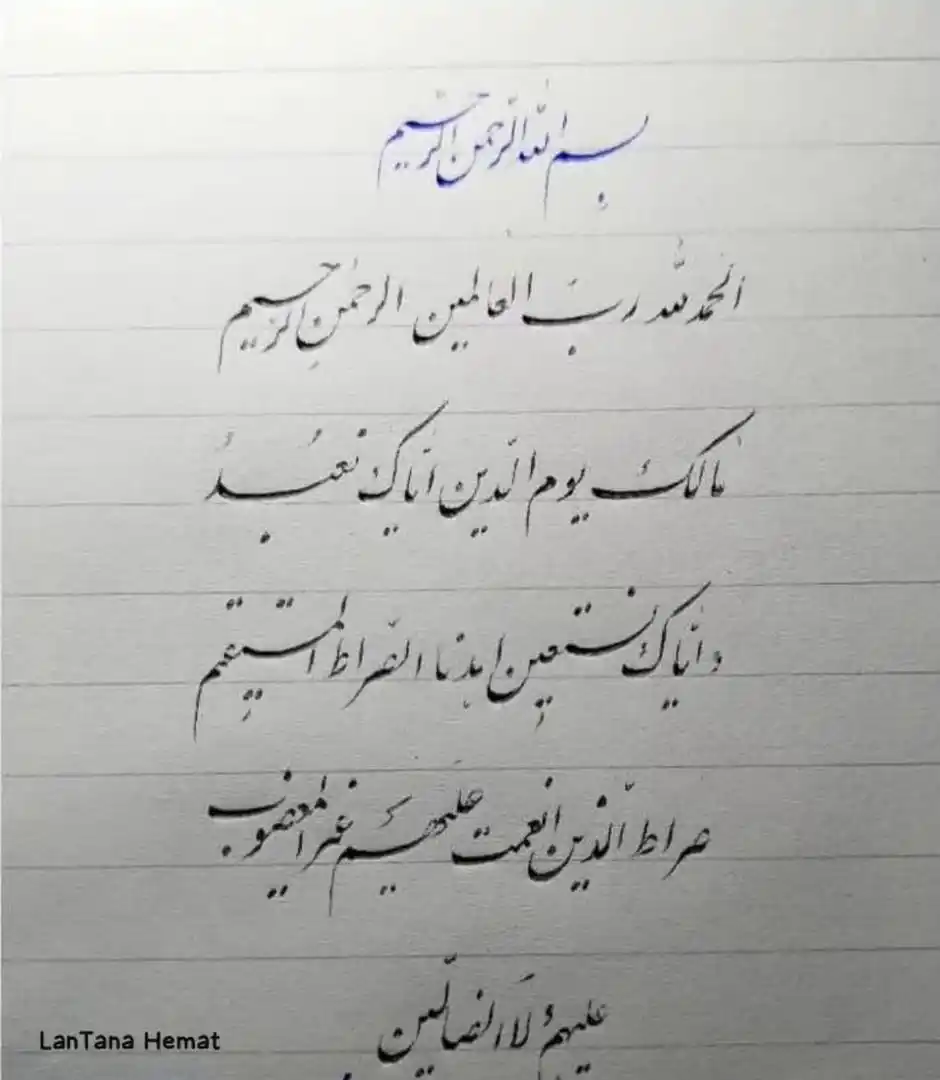 بسم الله الرحمن الرحیم
الحمد لله ربّ العالمین الرحمٰنِ الرحیم
مالک یوم الدّین ایّاک نعبُدُ
و ایّاک نستعین اهدنا الصّراط المستقیم
صراط الّذین انعمت علیهم غیر المغضوب
علیهم ولَا الضالّین
LanTana Hemat